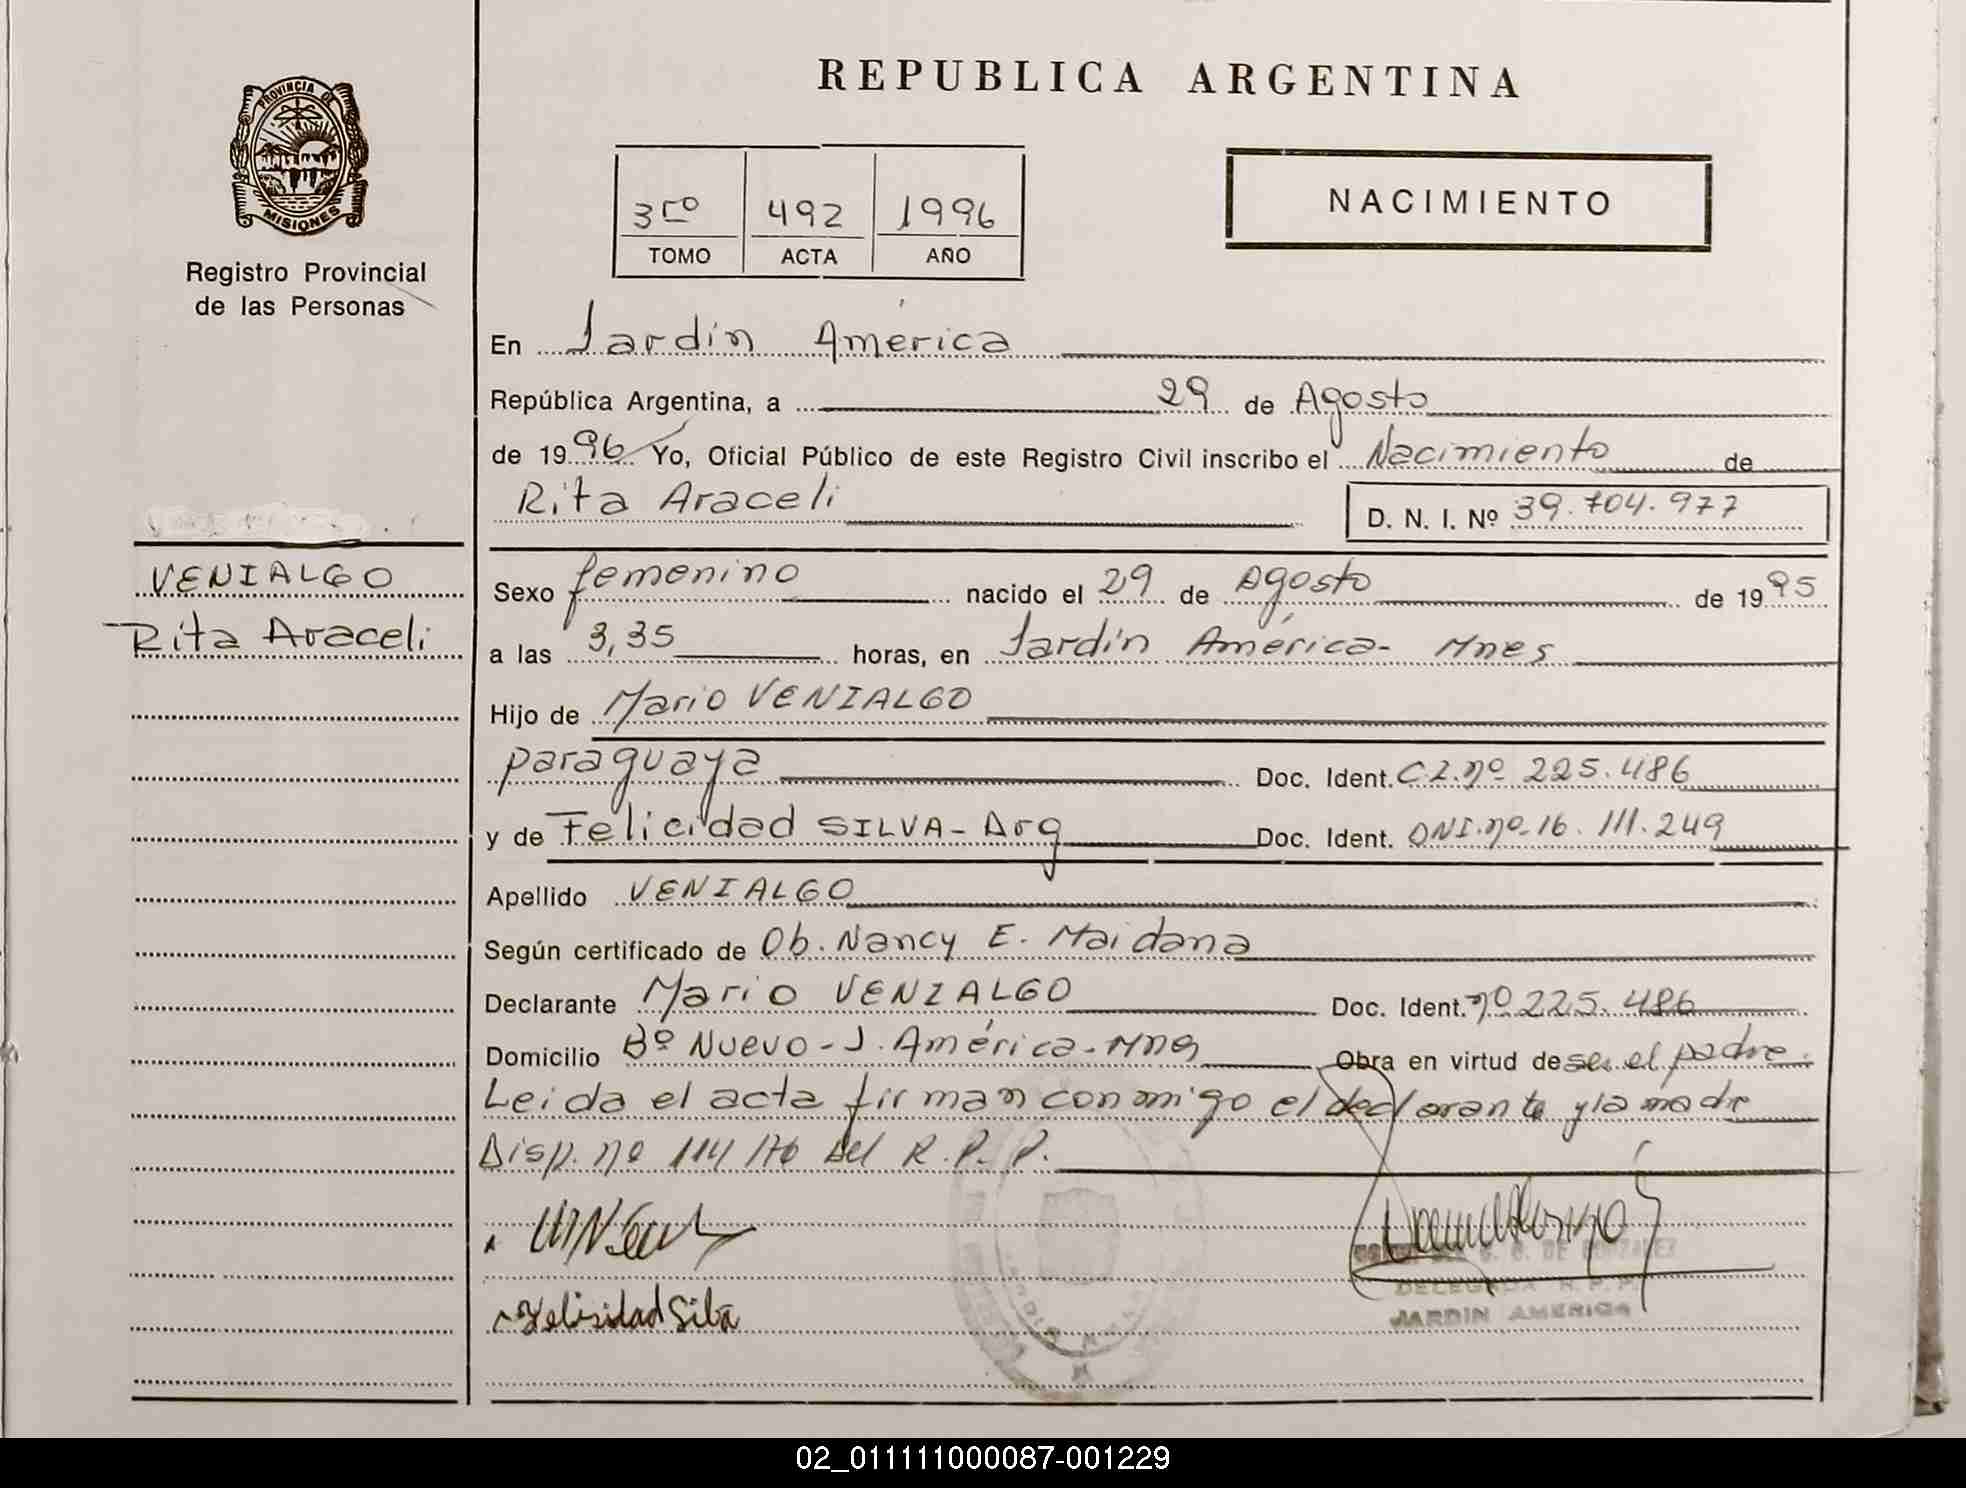 REPUBLICA ARGENTINA
PROVINCIA DE
MISIONES
Registro Provincial
de las Personas
3ro 492 1996
TOMO ACTA AÑO
NACIMIENTO
En Jardín América
República Argentina, a 29 de Agosto
de 1996 Yo, Oficial Público de este Registro Civil inscribo el Nacimiento de
Rita Araceli D. N. I. Nº 39.704.977
VENIALGO
Rita Araceli
Sexo femenino nacido el 29 de Agosto de 1995
a las 3,35 horas, en Jardín América- Mnes
Hijo de Mario VENIALGO
paraguaya Doc. Ident. C.I. nº 225.486
y de Felicidad SILVA- Arg Doc. Ident. DNI. nº 16.111.249
Apellido VENIALGO
Según certificado de Ob. Nancy E. Maidana
Declarante Mario VENIALGO Doc. Ident. nº 225.486
Domicilio Bº Nuevo - J. América - Mnes Obra en virtud de ser el padre.
Leida el acta firman conmigo el declarante y la madre
Disp. nº 114/76 del R. P. P.
Felisidad Silva
DE GONZALEZ
DELEGADA R. P. P.
JARDIN AMERICA
02_011111000087-001229